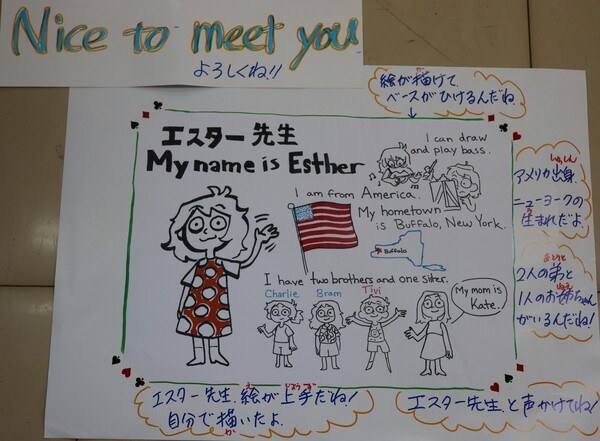 Nice to meet you
よろしくね!!
絵が描けて、
ベースがひけるんだね。
エスター先生
My name is Esther
I can draw
and play bass.
I am from America.
My hometown
is Buffalo, New York.
Buffalo
しゅっしん
アメリカ出身。
ニューヨークの
う
生まれだよ。
おとうと
2人の弟と
ねえ
1人のお姉ちゃん
がいるんだね!
I have two brothers and one sister.
Charlie
Bram
Tivi
My mom is
Kate.
え じょうず
エスター先生、絵が上手だね!
自分で描いたよ。
か
エスター先生、と声かけてね!